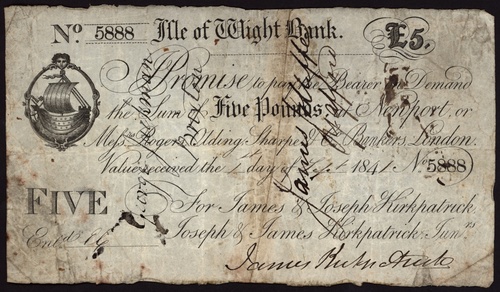 No 5888 Isle of Wight Bank. £5.
I Promise to pay the Bearer on Demand
the Sum of Five Pounds, at Newport, or
Messrs Rogers, Olding, Sharpe & Co Bankers, London.
Value received the 1 day of 1841 No 5888
FIVE For James & Joseph Kirkpatrick
Entd Joseph & James Kirkpatrick Junrs
James Kirkpatrick
James